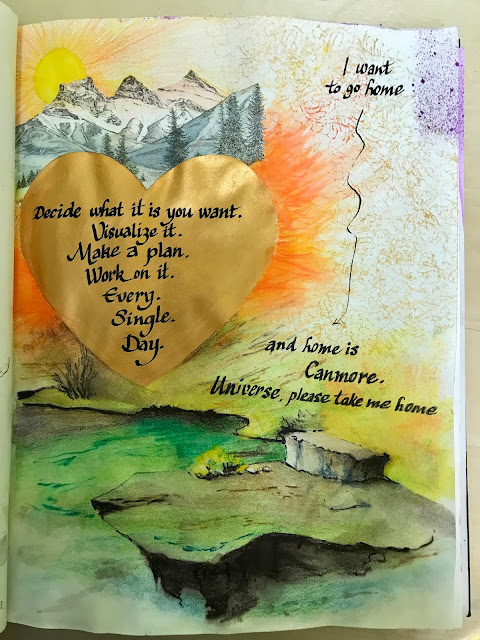 I want
to go home
Decide what it is you want.
Visualize it.
Make a plan.
Work on it.
Every.
Single.
Day.
and home is
Canmore.
Universe, please take me home